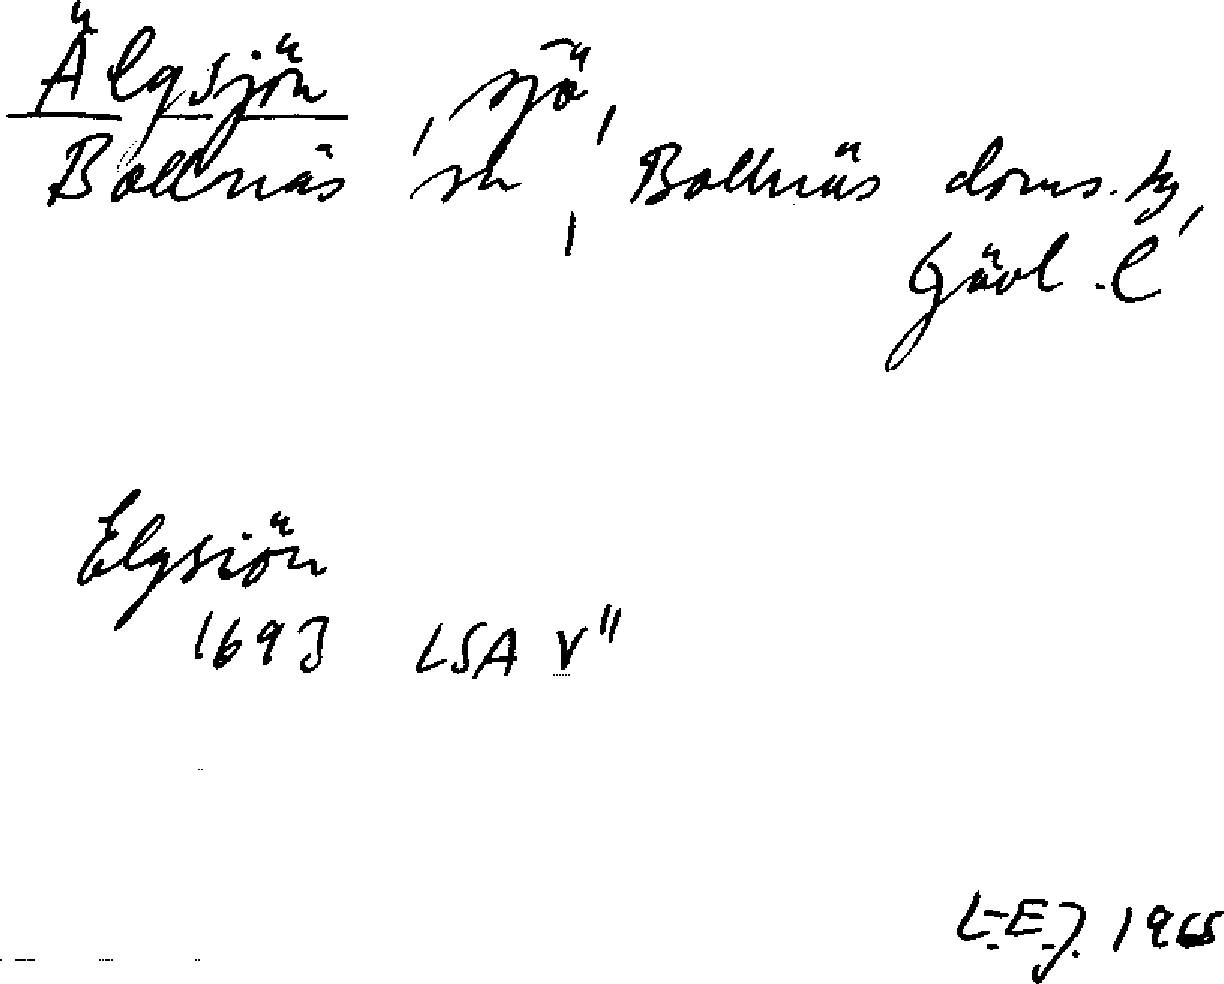 Älgsjön, sjö,
Bollnäs sn, Bollnäs doms.hg,
Gävl.l
Elgsiön
1693 LSA V"
L-E.J. 1965